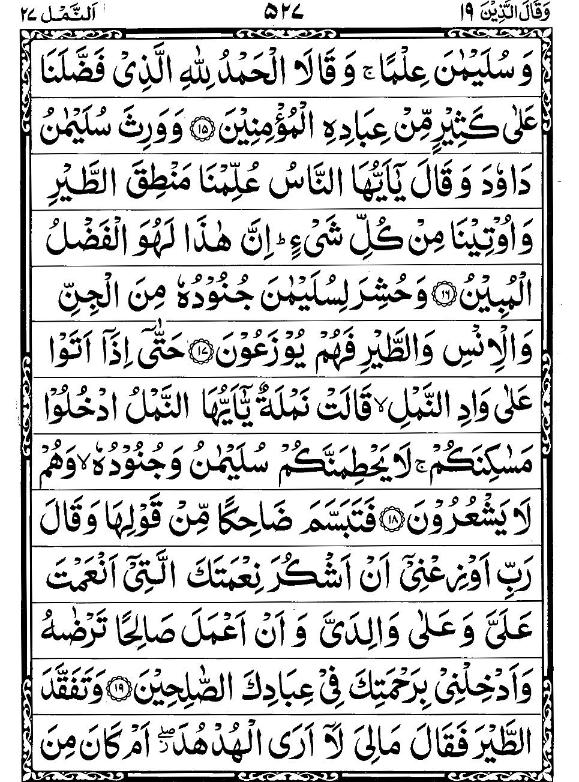 وَقَالَ الَّذِيْنَ ۱۹ ۵۲۷ اَلنَّمْل ۲۷
وَ سُلَيْمٰنَ عِلْمًا ۚ وَ قَالَا الْحَمْدُ لِلّٰهِ الَّذِىْ فَضَّلَنَا
عَلٰى كَثِيْرٍ مِّنْ عِبَادِهِ الْمُؤْمِنِيْنَ ۝۱۵ وَوَرِثَ سُلَيْمٰنُ
دَاوٗدَ وَقَالَ يٰۤاَيُّهَا النَّاسُ عُلِّمْنَا مَنْطِقَ الطَّيْرِ
وَاُوْتِيْنَا مِنْ كُلِّ شَىْءٍ ؕ اِنَّ هٰذَا لَهُوَ الْفَضْلُ
الْمُبِيْنُ ۝۱۶ وَحُشِرَ لِسُلَيْمٰنَ جُنُوْدُهٗ مِنَ الْجِنِّ
وَالْاِنْسِ وَالطَّيْرِ فَهُمْ يُوْزَعُوْنَ ۝۱۷ حَتّٰۤى اِذَاۤ اَتَوْا
عَلٰى وَادِ النَّمْلِ ۙ قَالَتْ نَمْلَةٌ يّٰۤاَيُّهَا النَّمْلُ ادْخُلُوْا
مَسٰكِنَكُمْ ۚ لَا يَحْطِمَنَّكُمْ سُلَيْمٰنُ وَجُنُوْدُهٗ ۙ وَهُمْ
لَا يَشْعُرُوْنَ ۝۱۸ فَتَبَسَّمَ ضَاحِكًا مِّنْ قَوْلِهَا وَقَالَ
رَبِّ اَوْزِعْنِىْۤ اَنْ اَشْكُرَ نِعْمَتَكَ الَّتِىْۤ اَنْعَمْتَ
عَلَىَّ وَعَلٰى وَالِدَىَّ وَ اَنْ اَعْمَلَ صَالِحًا تَرْضٰهُ
وَاَدْخِلْنِىْ بِرَحْمَتِكَ فِىْ عِبَادِكَ الصّٰلِحِيْنَ ۝۱۹ وَتَفَقَّدَ
الطَّيْرَ فَقَالَ مَالِىَ لَاۤ اَرَى الْهُدْهُدَ ۖ اَمْ كَانَ مِنَ